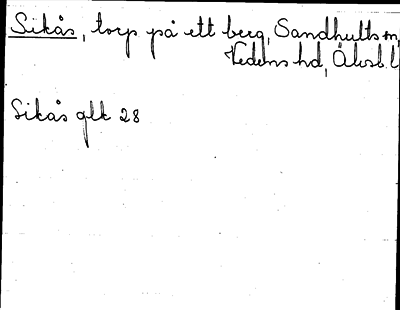 Sikås, torp på ett berg, Sandhults sn,
Vedens hd, Älvsb l
Sikås glk 28